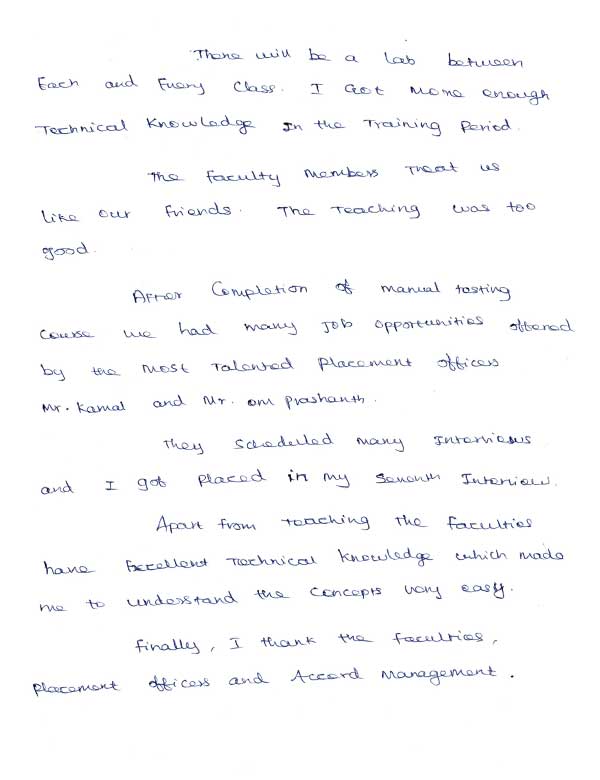 There will be a lab between
Each and Every Class. I Got more enough
Technical Knowledge In the Training Period.
The Faculty members Treat us
like our Friends. The Teaching was too
good.
After Completion of manual testing
Course we had many Job opportunities offered
by the most Talented Placement officers
Mr. Kamal and Mr. Om Prashanth.
They Scheduled many Interviews
and I got placed in my Seventh Interview.
Apart from teaching the faculties
have Excellent Technical Knowledge which made
me to understand the Concepts very easy.
Finally, I thank the faculties,
placement officers and Accord Management.